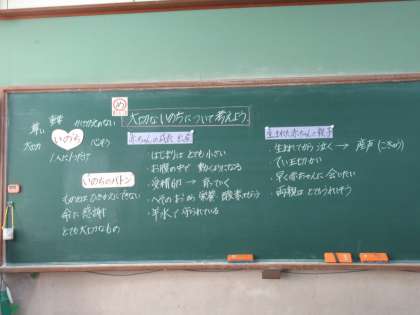 め
大切ないのちについて考えよう
尊い 重要 かけがえのない
いのち
大切 心ぞう
1人に1つだけ
いのちのバトン
ひきかえにできない
命に感謝
とても大切なもの
赤ちゃんの成長
・はじまりは とても小さい
・お腹の中で 動くようになる
・受精卵 → 育っていく
・へそのお
・羊水で守られている
生まれた赤ちゃんと親子
・生まれてから泣く → 産声（こきゅう）
・早く赤ちゃんに会いたい
・両親は とてもうれしそう